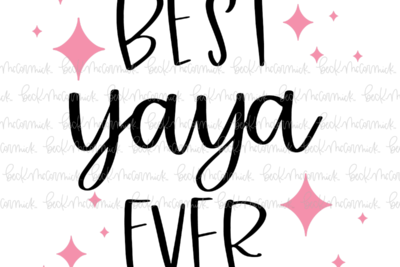 BEST
yaya
EVER